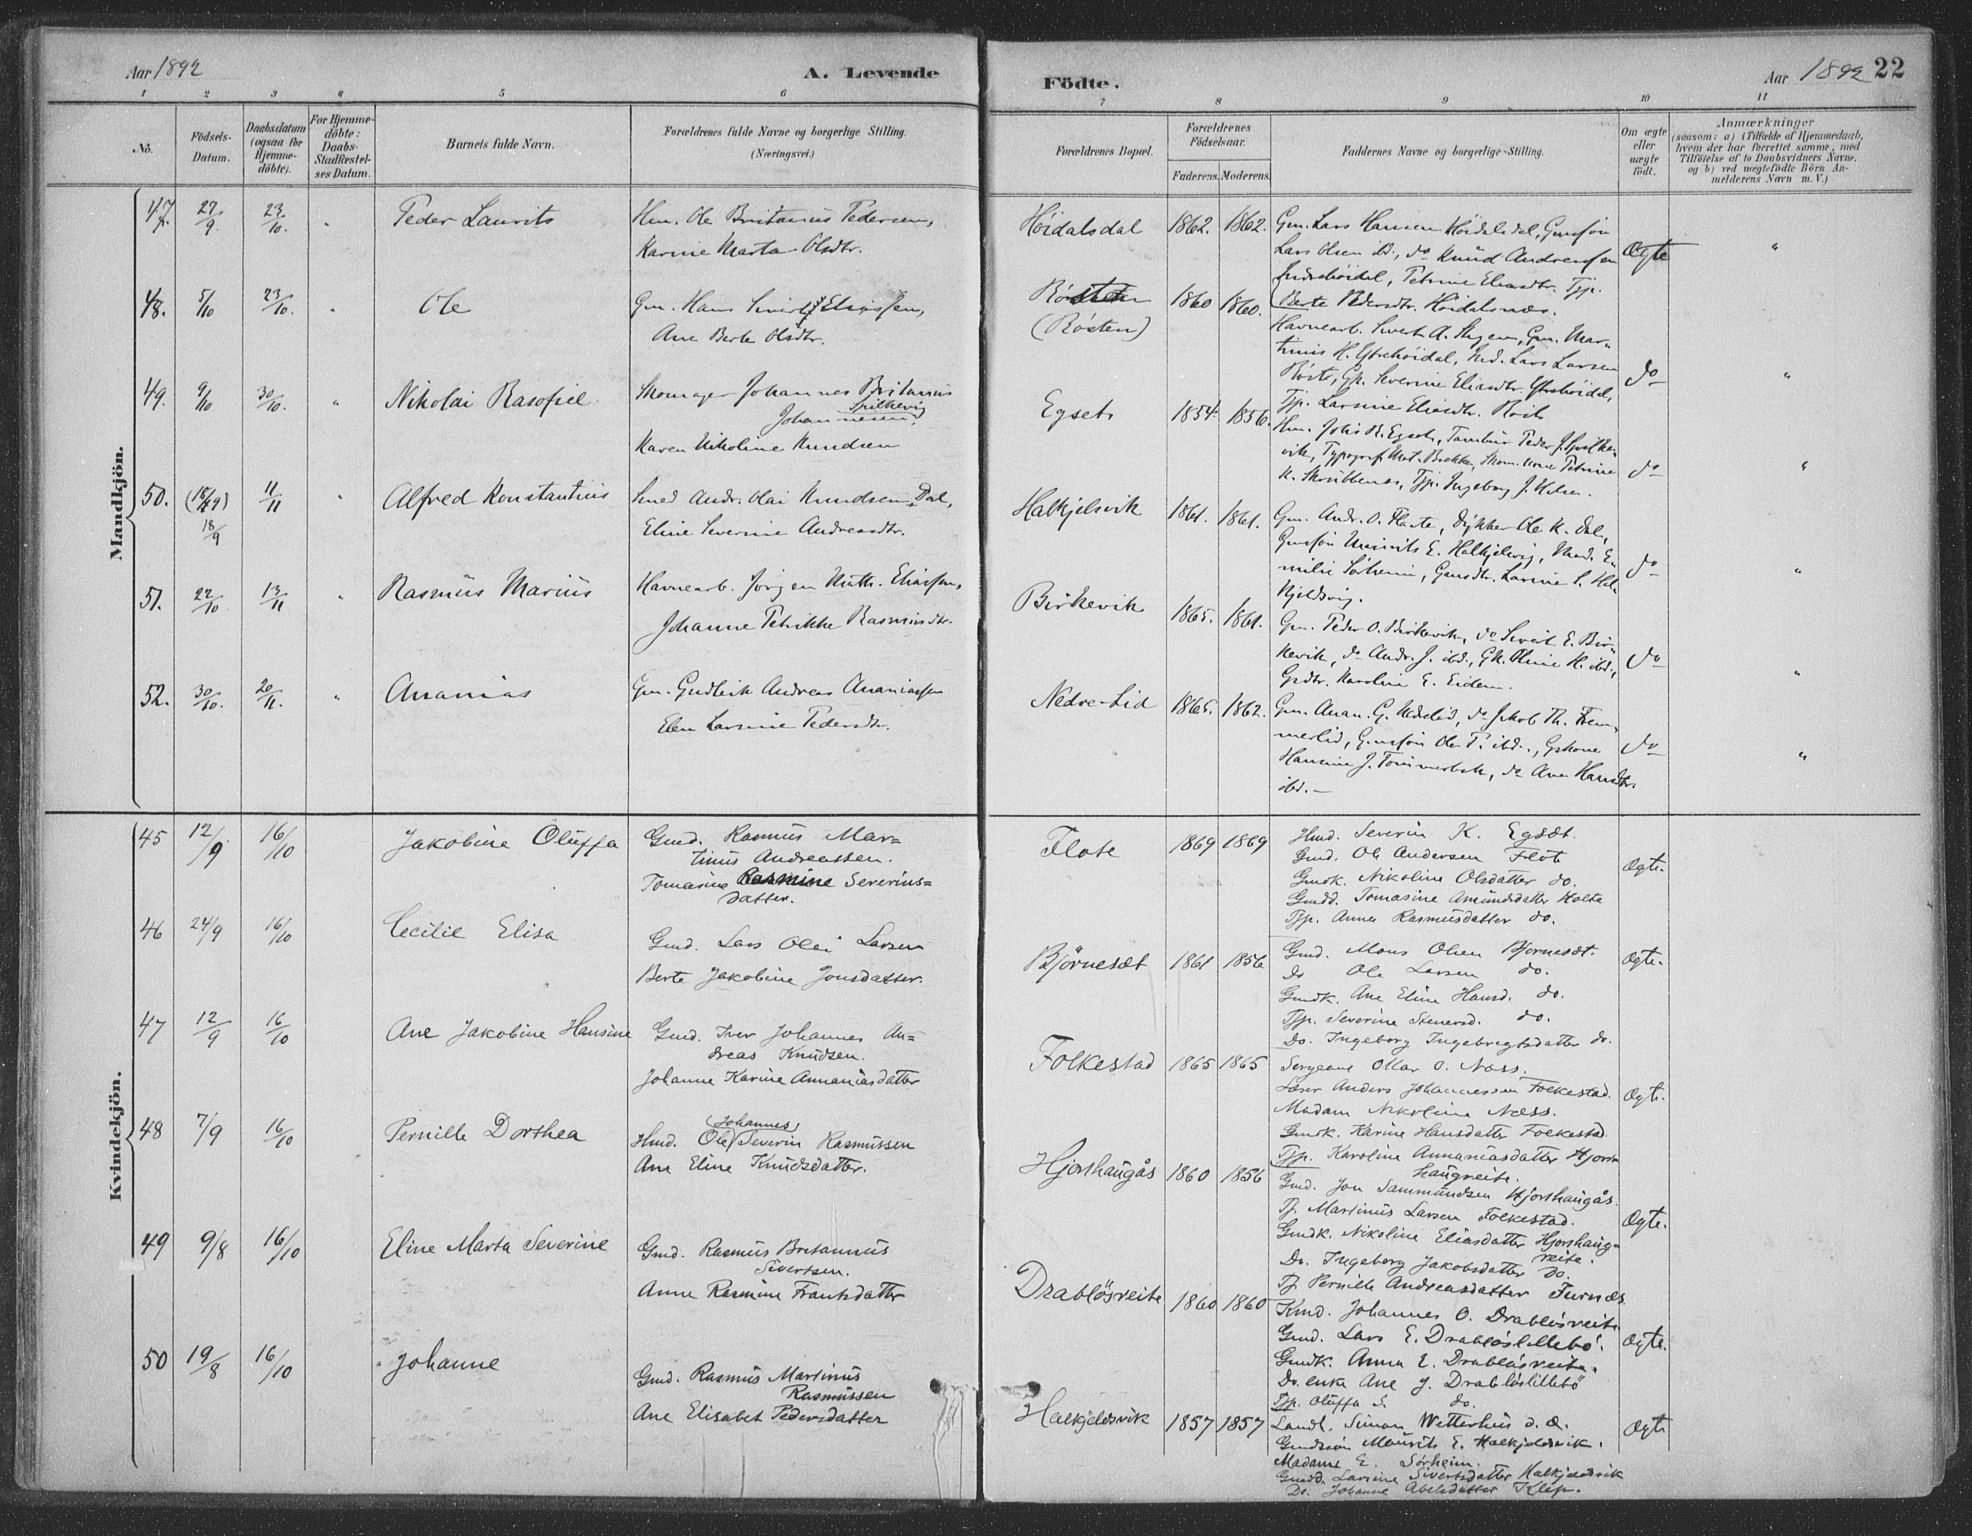 Aar 1892
A. Levende
Födte.
Aar 1892 22
1 2 3 4 5 6 7 8 9 10 11
No.
Födsels-
Datum.
Daabsdatum
(ogsaa for
Hjemme-
döbte).
For Hjemme-
döbte:
Daabs-
Stadfæstel-
ses Datum.
Barnets fulde Navn.
Forældrenes fulde Navne og borgerlige Stilling.
(Næringsvei.)
Forældrenes Bopæl.
Forældrenes
Födselsaar.
Faderens. Moderens.
Faddernes Navne og borgerlige Stilling.
Om ægte
eller
uægte
födt.
Anmærkninger
(saasom: a) i Tilfælde af Hjemmedaab,
hvem der har forrettet samme, med
Tilföielse af to Daabsvidners Navne,
og b) ved uægtefödte Börn An-
melderens Navn m. V.)
Mandkjön.
47. 27/9 23/10. Peder Laurits
Hm. Ole Britanus Pedersen,
Karine Marta Olsdtr.
Höidalsdal 1862. 1862.
Gm. Lars Hansen Höidalsdal, Gmsön
Lars Olsen ibd., do Knud Andreassen
Indrehöidal, Petrine Eliasdtr. Tjp.
Berte Pedersdtr. Höidalsnæs.
Ægte "
48. 5/10 23/10. Ole
Gm. Hans Sivert Eliassen,
Ane Berte Olsdtr.
(Rösten) 1860 1860.
Havnearb. Sivert A. Stegen, Gm. Mar-
tinus H. Ytrehöidal, Ind. Lars Larsen
Röste, Gk. Severine Eliasdtr. Ytrehöidal,
Tjp. Larsine Eliasdtr. Röste
do "
49. 9/10 30/10. " Nikolai Rasofiel
Skomager Johannes Britanus
Spilkevig
Johannesen,
Karen Nikoline Knudsen
Egset 1854. 1856.
Hm. Johs R. Egset, Tambur Peder J. Spilke-
vik, Typograf Mat. Brekke, Skom. kone Petrine
K. Skrubbenes, Tjp. Ingeborg J. Helsen.
do "
50. (18/9) 18/9 11/11 " Alfred Konstantius
Smed Andr. Olai Knudsen Dal,
Eline Severine Andreasdtr.
Halkjelsvik 1861. 1861.
Gm. Andr. O. Flaate, Dykker Ole K. Dal,
Gmsön Mauritz E. Halkjelsvig, Mad. E-
milie Sörheim, Gmsdtr. Larsine S. Hal-
kjeldsvig.
do "
51. 22/10. 13/11 " Rasmus Marius
Havnearb. Jörgen Math. Eliassen,
Johanne Petrikke Rasmusdtr.
Birkevik 1865. 1861.
Gm. Peder O. Birkevik, do Sivert E. Bir-
kevik, do Andr. J. ibd., Gk. Oline K. ibd.,
Gsdtr. Karoline E. Eidem.
do "
52. 30/10. 20/11. " Ananias
Gm. Gudleik Andreas Ananiassen
Elen Larsine Pedersdtr.
Nedre-Lid 1865. 1862.
Gm. Anan. G. Nedrelid, do Jakob Th. Frem-
merlid, Gmsön Ole P. ibd., Gkone
Hansine J. Tommerbak, do Ane Hansdtr.
ibd. —
do "
Kvindekjön.
45 12/9 16/10 Jakobine Oluffa
Gmd. Rasmus Mar=
tinus Andreassen.
Tomasine Rasmine Severins=
datter.
Flote 1869 1869
Hmd. Severin K. Egsæt.
Gmd. Ole Andersen Flote
Gmdk. Nikoline Olsdatter do.
Gmdd. Tomasine Amundsdatter Holte
Tjp. Anne Rasmusdatter do.
Ægte.
46 24/9 16/10 Cecilie Elisa
Gmd. Lars Olai Larsen
Berte Jakobine Jonsdatter.
Björnesæt 1861 1856
Gmd. Mons Olsen Björnesæt.
Do Ole Larsen do.
Gmdk. Ane Eline Hansd. do.
Tjp. Severine Stenersd. do.
Do. Ingeborg Ingebregtsdatter do.
Ægte.
47 12/9 16/10 Ane Jakobine Hansine
Gmd. Iver Johannes An=
dreas Knudsen.
Johanne Karine Annaniasdatter
Folkestad 1865 1865
Sergeant Olar O. Næss.
Lærer Anders Johannessen Folkestad.
Madam Nikoline Næss.
Gmdk. Karine Hansdatter Folkestad.
Tjp. Karoline Annaniasdatter Hjors-
haugreite.
Ægte.
48 7/9 16/10 Pernille Dorthea
Johannes
Hmd. Ole Severin Rasmussen
Ane Eline Knudsdatter.
Hjorshaugås 1860 1856
Gmd. Jon Sammundsen Hjorshaugås.
Tj. Martinus Larsen Folkestad.
Gmdk. Nikoline Eliasdatter Hjorshaug=
reite.
Do. Ingeborg Jakobsdatter do.
Tj. Pernille Andreasdatter Furnæs.
Ægte.
49 9/8 16/10 Eline Marta Severine
Gmd. Rasmus Britannus
Sivertsen.
Anne Rasmine Frantsdatter
Drablösreite 1860 1860
Kmd. Johannes O. Drablösreite.
Gmd. Lars E. Drablöslillebö.
Gmdk. Anna E. Drablösreite.
Do. enke Ane J. Drablöslillebö
Tjp. Oluffa S. do.
Ægte.
50 19/8 16/10 Johanne
Gmd. Rasmus Martinus
Rasmussen
Ane Elisabet Pedersdatter
Halkjeldsvik 1857 1857
Landh. Simon Wetterhus d. Æ.
Gmdsön Mauritz E. Halkjeldsvik.
Madame E. Sörheim.
Gmdd. Larsine Sivertsdatter Halkjeldsvik
Do. Johanne Abelsdatter Klep.
Ægte